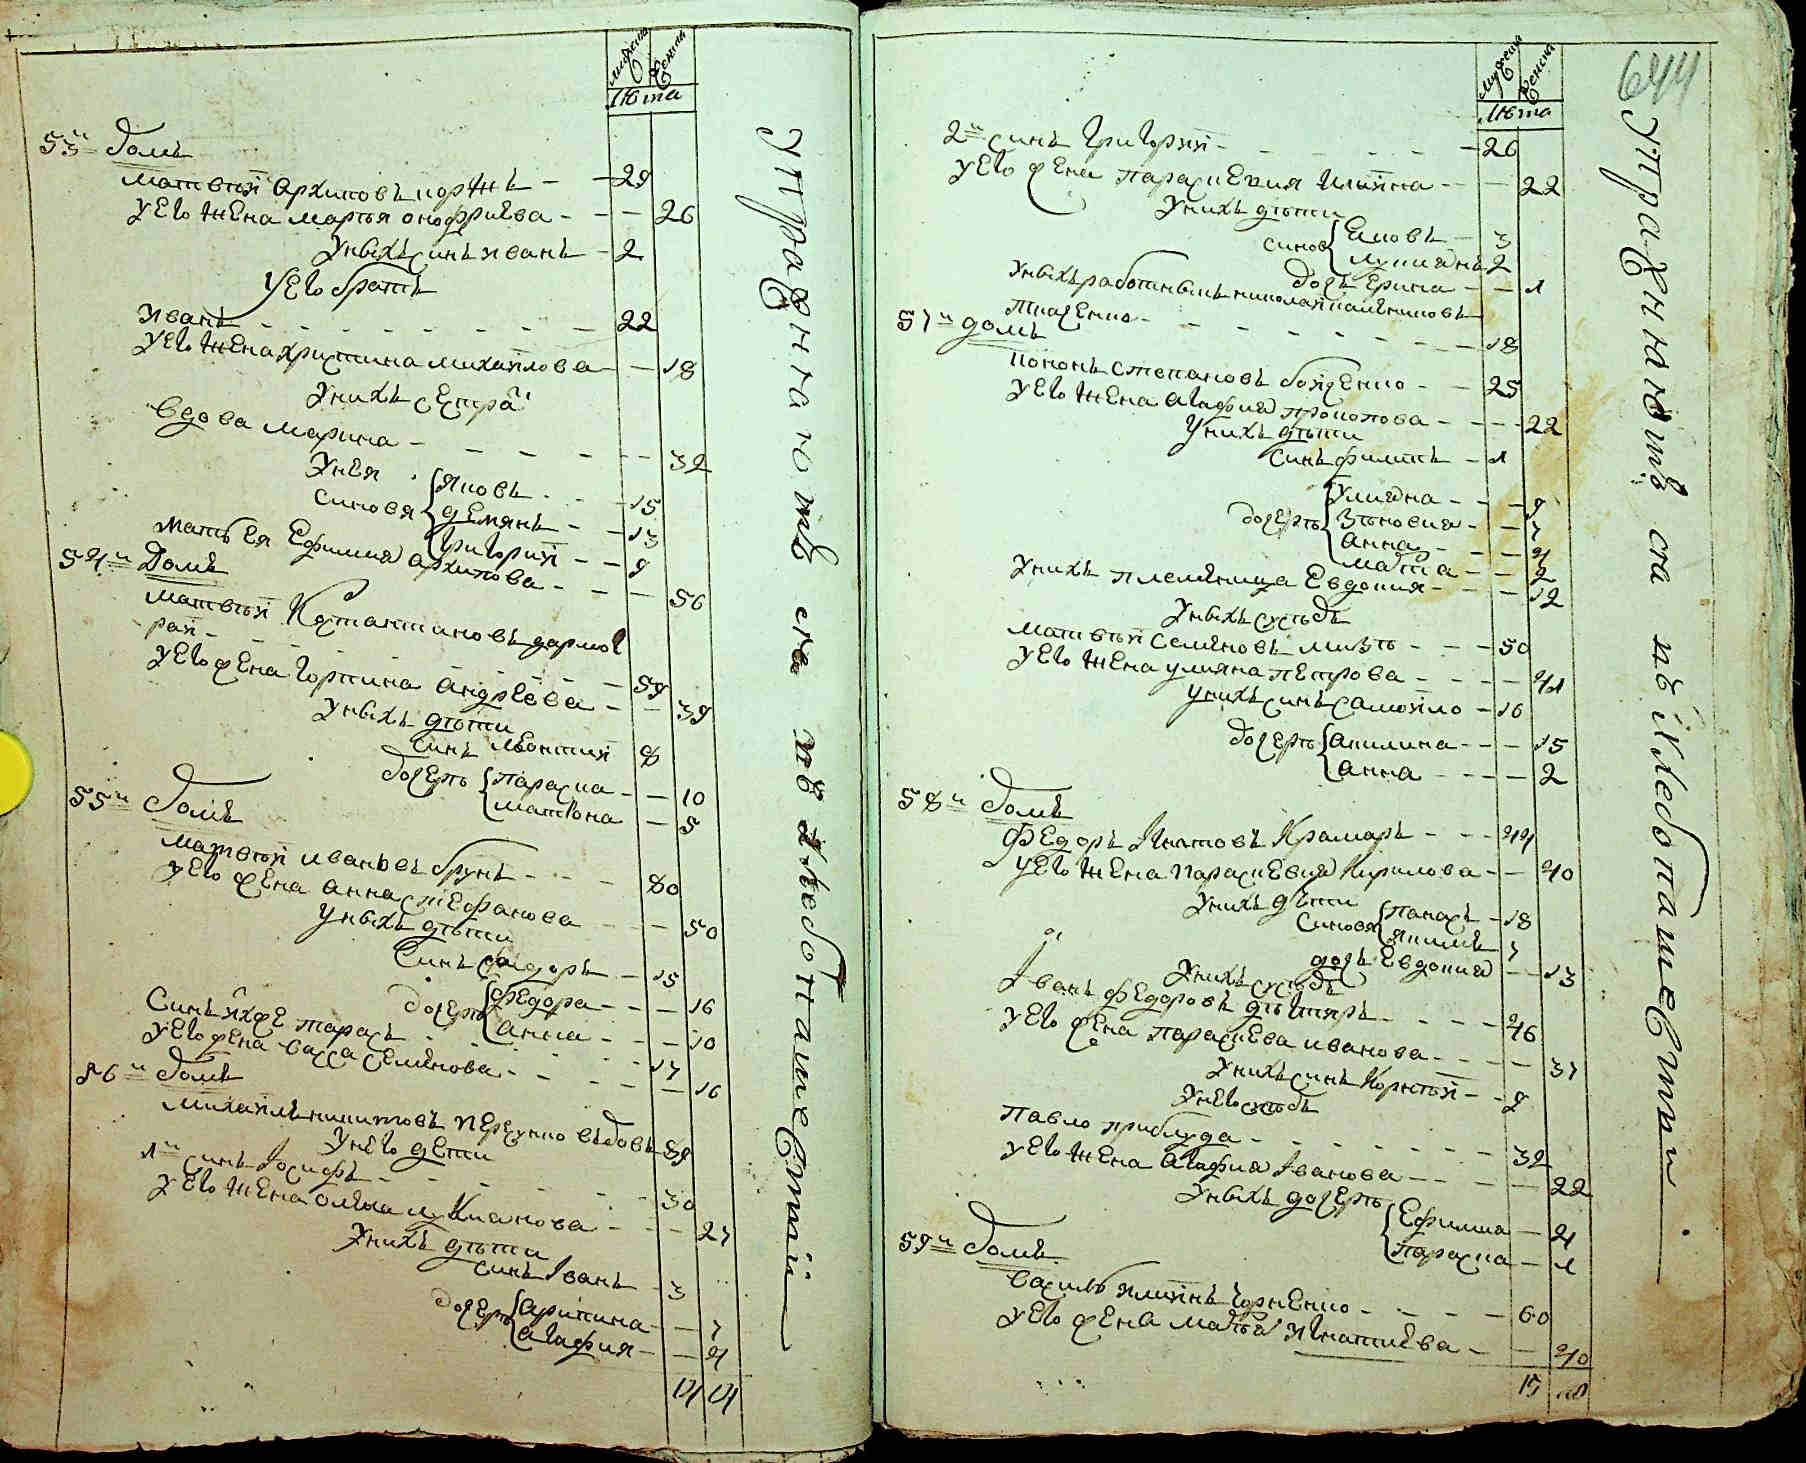 мужеска
женска
Лѣта
53й домъ
матвѣй архиповъ коржъ - - 29
уего жена марья онофриева - - - 26
унихъ синъ иванъ - 2
уего братъ
иванъ - - - - - - - 22
уего жена христина михайлова - - 18
унихъ сестра
вдова марина - - - - - - 32
унея
синовя
яковъ - - - 15
демянъ - - 13
григорий - - 9
мать ея Ефимия архипова - - - 56
54й домъ
матвѣй Костантиновъ
рай - - - - - - 59
уего жена горпина андреева - - 39
унихъ дѣти
синъ леонтий 8
дочерѣ
параска - - 10
матрона - 5
55й домъ
матвѣй ивановъ брунъ - - - - 80
уего жена анна стефанова - - - 50
унихъ дѣти
синъ федоръ - 15
дочерѣ
федора - - - 16
анна - - - 10
синъ ихже тарасъ - - - - - 17
уего жена васса семенова - - - - - 16
56й домъ
михайлъ никитовъ вдовъ 89
унего дети
1й синъ Иосифъ - - - - - 30
уего жена олена лукианова - - - 27
унихъ дѣти
синъ Іванъ - 3
дочерѣ
арипина - - 7
агафия - - 4
14 14
упражняютъ ся въ хлебопашествѣ
644
мужеска
женска
Лѣта
2й синъ григорий - - - - - 26
уего жена параскевия илиина - - - 22
унихъ дѣти
синов
яковъ - 3
лукиянъ 2
дочъ Ерина - - 1
унихъ работникъ николай
ткаченко - - - - - - - 18
57й домъ
кононъ степановъ бойченко - - 25
уего жена агафия прокопова - - - 22
унихъ дѣти
синъ филипъ - 1
дочерѣ
улияна - - - 9
зѣновия - - 7
анна - - - 4
марта - - 2
унихъ племѣница Евдокия - - - 12
унихъ сусѣдъ
матвѣй семеновъ - - - 50
уего жена улияна петрова - - - - 41
унихъ синъ самойло - 16
дочерѣ
акилина - - - 15
анна - - - - 2
58й домъ
федоръ Игнатовъ Крамаръ - - - 44
уего жена параскевия Кирилова - - 40
унихъ дѣти
синовя
панасъ - 18
якимъ 7
дочъ Евдокия - - 13
унихъ сусѣдъ
Іванъ федоровъ дѣгтяръ - - - - 46
уего жена параскева иванова - - - - 37
унихъ синъ Корнѣй - - 9
унего сусѣдъ
павло приблуда - - - - - - - 32
уего жена агафия Іванова - - - - 22
унихъ дочерѣ
Ефимия - 4
параска - 1
59й домъ
василь илиинъ чорненко - - - - 60
уего жена марья игнатиева - - 40
15
упражняютъ ся въ хлебопашествѣ